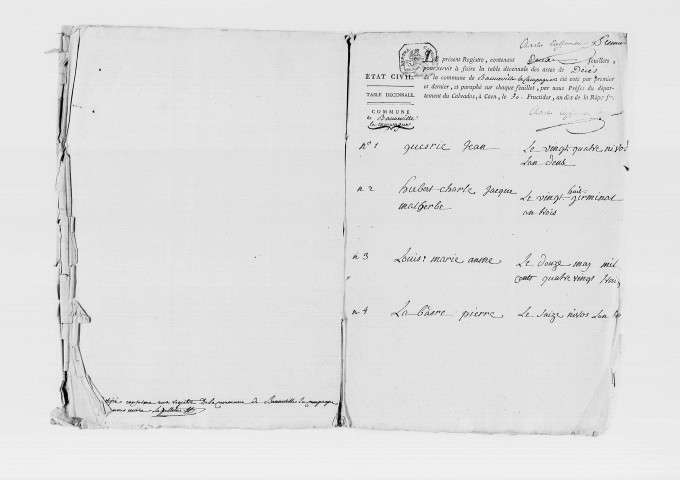 conforme aux registre De la commune de Banneville la campagne
Le présent Registre, contenant feuillets,
pour servir à faire la table décennale des actes de Décès
de la commune de Banneville la Campagne a été coté par premier
et dernier, et paraphé sur chaque feuillet, par nous Préfet du dépar-
tement du Calvados, à Caen, le 30 Fructidor, an dix de la Rép. fr.
ÉTAT CIVIL.
TABLE DÉCENNALE.
COMMUNE
de Banneville
la campagne
n° 1 guerie Jean Le vingt quatre nivos
Lan deux
n 2 hubert charle Jacque Le vingt huit germinal
malherbe an trois
n 3 Louis marie anne Le douze may mil
cents quatre vingt trois
n 4 La basre pierre Le saize nivos Lan